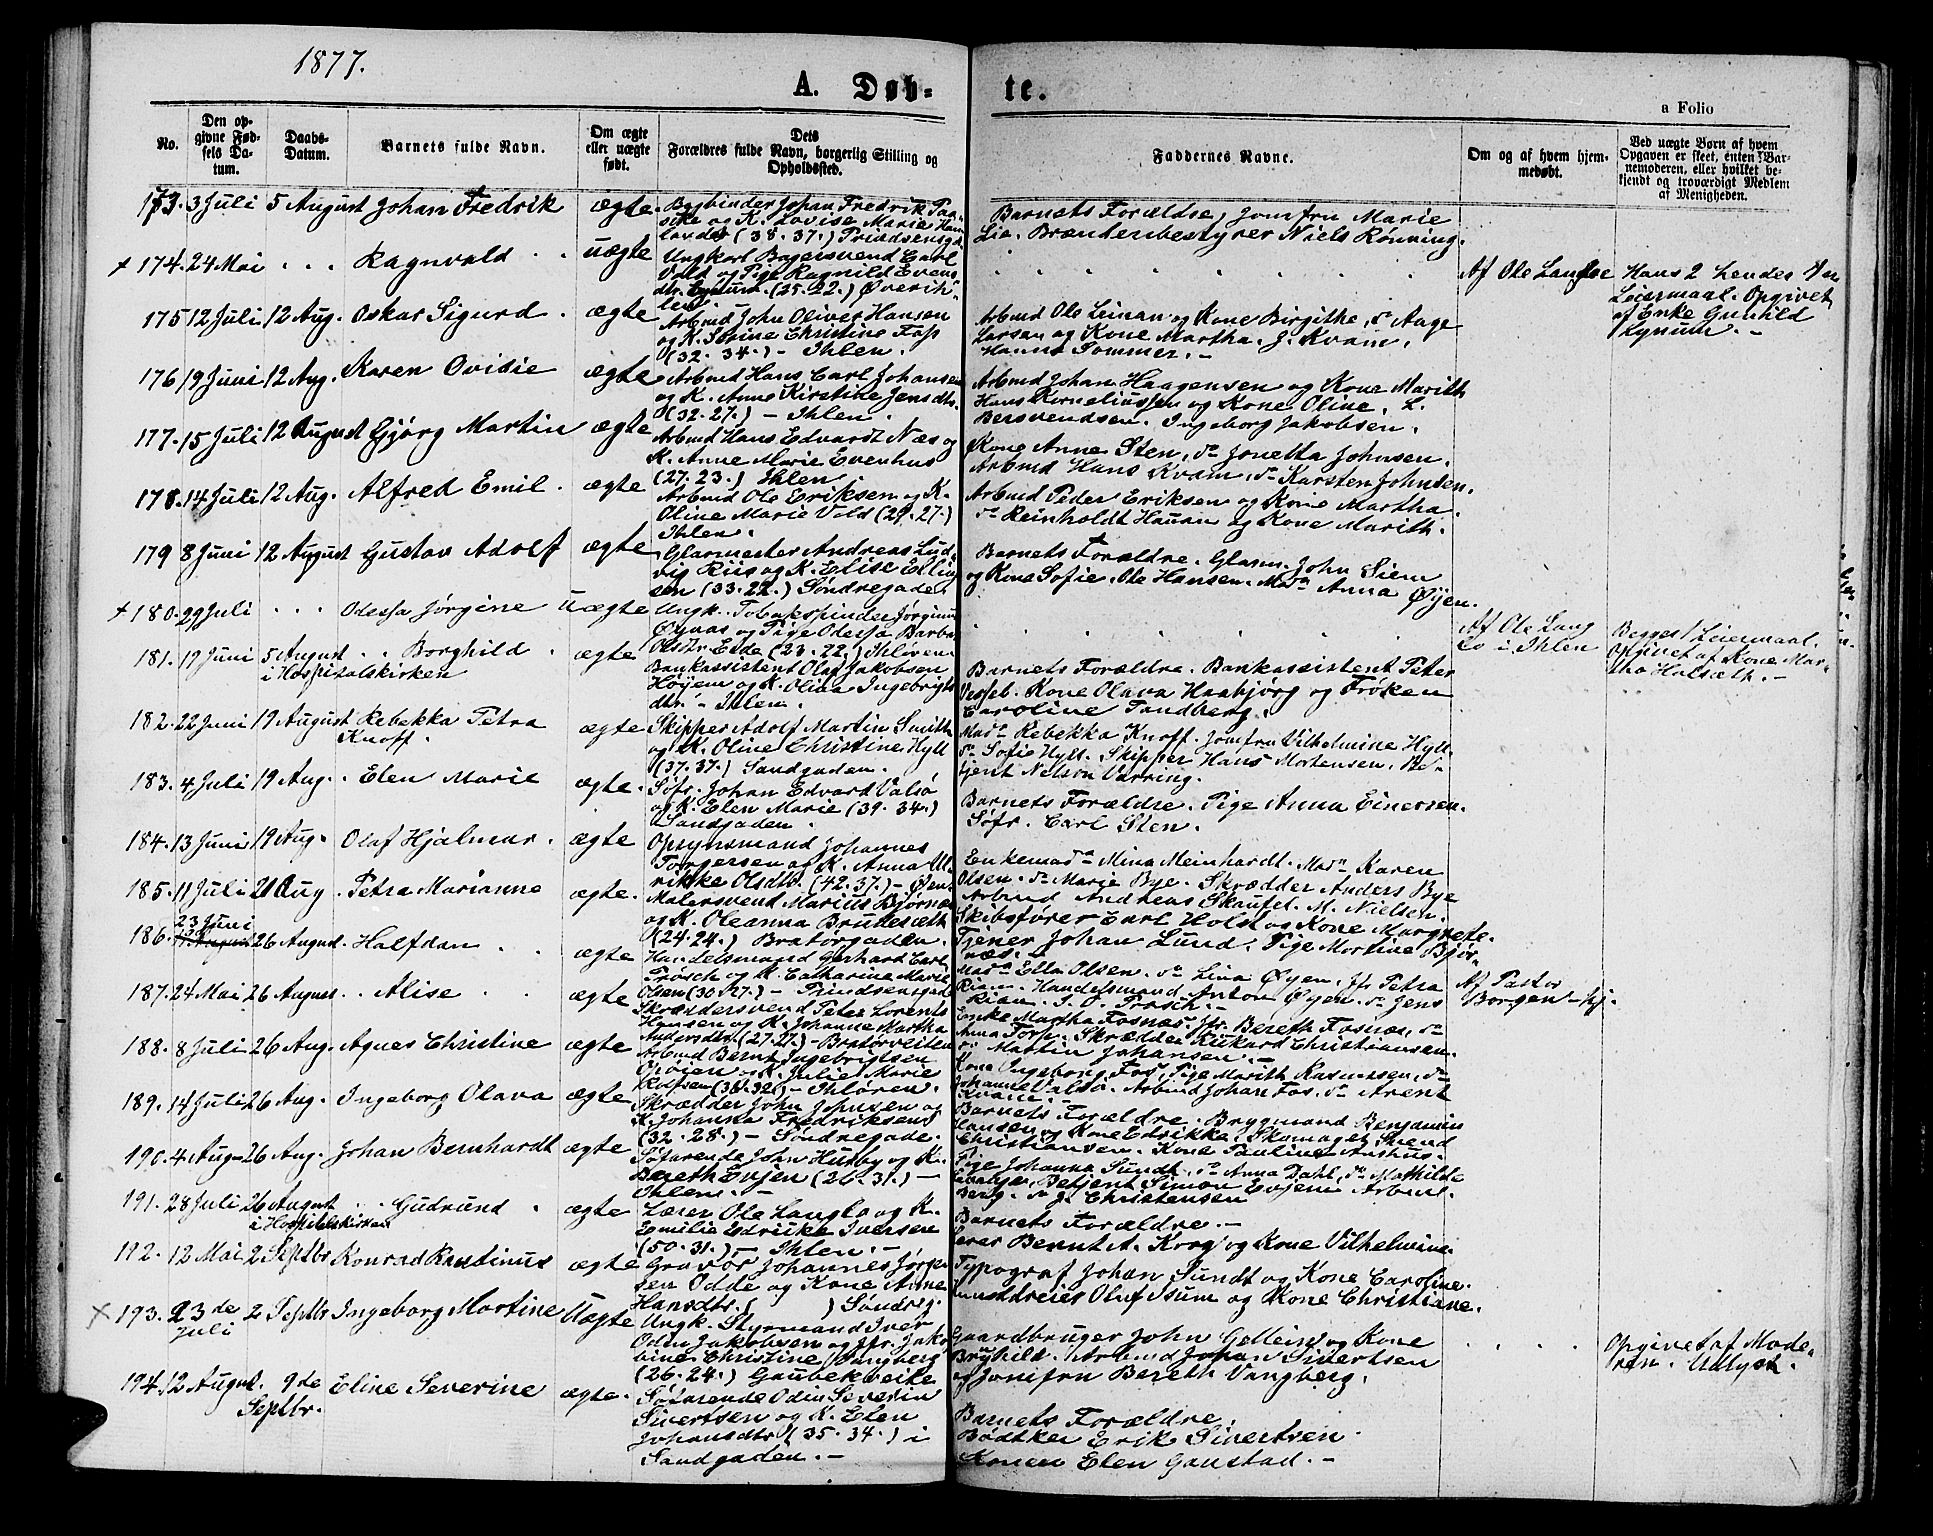 1877.
A. Døb-
te.
a Folio
No.
Den op-
givne Fød-
sels Da-
tum.
Daabs-
Datum.
Barnets fulde Navn.
Om ægte
eller uægte
født.
Dets
Forældres fulde Navn, borgerlig Stilling og
Opholdssted.
Faddernes Navne.
Om og af hvem hjem-
medøbt.
Ved uægte Børn af hvem
Opgaven er skeet, enten Bar-
nemoderen, eller hvilket be-
kjendt og troværdigt Medlem
af Menigheden.
173. 3 Juli 5 August Johan Fredrik ægte.
Bogbinder Johan Fredrik
og K. Lovise Marie
(38. 37.) Prindsensgd.
Barnets Forældre, Jomfru Marie
Lie. Brænderibestyrer Niels Rønning.
+ 174. 24 Mai . . . Ragnvald . . uægte
Ungkarl Bagersvend Carl
Vold og Pige Ragnild Evens
dtr. Lynum. (25. 22.) Øverih-
len.
Af Ole Langloe
Hans 2 hendes 1ste
Leiermaal. Opgivet
af Enke Gunild
Lynum. -
175 12 Juli 12 Aug. Oskar Sigurd . ægte
Arbmd John Oliver Hansen
og K. Serine Christine Foss
(32. 34.) - Ihlen.
Arbmd Ole Leinan og Kone Birgithe, do Aage
Larsen og Kone Martha. J. Kvam.
Hanna Sommer. -
176 19 Juni 12 Aug. Karen Ovidie ægte
Arbmd Hans Carl Johansen
og K. Anne Kirstine Jensdtr.
(32. 27.) - Ihlen.
Arbmd Johan Haagensen og Kone Marith
Hans Korneliussen og Kone Oline. L.
Bersvendsen. Ingeborg Jakobsen.
177. 15 Juli 12 August Gjørg Martin ægte
Arbmd Hans Edvardt Næs og
K. Anne Marie Evenhus
(27. 23.) Ihlen.
Kone Anne Sten, do Jonetta Johnsen.
Arbmd Hans Kvam, do Karsten Johnsen.
178. 14 Juli 12 Aug. Alfred Emil . ægte
Arbmd Ole Eriksen og K.
Oline Marie Vold (29. 27.)
Ihlen.
Arbmd Peder Eriksen og Kone Martha.
do Reinholdt Hauan og Kone Marith.
179 8 Juni 12 August Gustav Adolf ægte
Glarmester Andreas Lud-
vig Riis og K. Elise Elling
sen (33. 22.) Søndregade.
Barnets Forældre. Glarm. John Siem
og Kone Sofie. Ole Hansen. Madm Anna Øyen.
+ 180. 29 Juli . . . Odessa Jørgine Uægte
Ungk. Tobakspinder Jørginus
og Pige Odessa Barba
Olsdtr. Eide (23. 22) Ihleven.
Af Ole Lang
lo i Ihlen
Begges 1 Leiermaal.
Opgivet af Kone Mar-
tha Halseth. -
181. 19 Juni 5 August . . Borghild . ægte
i Hospitalskirken
Bankassistent Olaf Jakobsen
Høyem og K. Olida Ingebrigts
dtr. - Ihlen.
Barnets Forældre. Bankassistent Peter
Vessel. Kone Olava Haabjørg og Frøken
Caroline Tandberg.
182. 22 Juni 19 August Rebekka Petra ægte
Knoff.
Skipper Adolf Martin Smith
og K. Oline Christine Hyll
(37. 37.) Sandgaden.
Madm Rebekka Knoff. Jomfru Vilhelmine Hyll.
do Sofie Hyll. Skipper Hans Mortensen. Be-
tjent Nelson Varring.
183. 4 Juli 19 Aug. . Elen Marie ægte.
Søfr. Johan Edvart Valsø
og K. Elen Marie (39. 34.)
Sandgaden.
Barnets Forældre. Pige Anna Einersen.
Søfr. Carl Sten.
184. 13 Juni 19 Aug. Olaf Hjalmar . ægte
Opsynsmand Johannes
Torgersen og K. Anna Ul-
rikke Olsdtr. (42. 37.) -
Enkemadm Mina Meinhardt. Madm Karen
Olsen. do Marie Bye. Skrædder Anders Bye
185. 11 Juli 21 Aug. Petra Marianne ægte.
Malersvend Marius Bjørnæs
og K. Oleanna Brudesæth
(24. 24.) Bratørgaden.
Arbmd Andreas Skaufel. M. Nielsen.
Skibsfører Carl Holst og Kone Margrete.
Tjener Johan Lund. Pige Martine Bjør-
næs. -
23 Juni
186. 26 August. Halfdan . . ægte
Handelsmand Gerhard Carl
Frøsch og K. Catharine Marie
Olsen (30. 27.) - Prindsensgade
Madm Ella Olsen. do Lina Øyen. Jfr. Petra
Rian. Handelsmand Anton Øyen. do Jens
Rian. J. O. Frøsch. -
187. 24 Mai 26 August . . Alise . . ægte
Skræddersvend Peter Lorents
Hansen og K. Johanne Martha
Andersdtr. (27. 27.) - Bratørveiten
Enke Martha Fosnæs. Jfr. Bereth Fosnæs, do
Anna Torp. Skrædder Rickard Christiansen.
do Martin Johansen. -
Af Pastor
Borgen - hj.
188. 8 Juli 26 Aug. Agnes Christine ægte
Arbmd Bernt Ingebrigtsen
Opøien og K. Julie Marie
Rolfsen (36. 32.) - Ihløren.
Kone Ingeborg Fos, Pige Marith Rasmussen, do
Johanne Valsø. Arbmd Johan Fos. do Arent
Kvam. -
189. 14 Juli 26 Aug. Ingeborg Olava ægte
Skrædder John Johnsen og
K. Johanna Fredriksens
(32. 28.) - Søndregade.
Barnets Forældre. Brygmand Benjamin
Hansen og Kone Edrikke. Skomager Svend
Christiansen. Kone Pauline Aashus.
190. 4 Aug. 26 Aug. Johan Bernhardt ægte
Søfarende John Husby og K.
Bereth Evjen (26. 31.) -
Ihlen. -
Pige Johanna Sundt. do Anna Dahl, do Mathilde
Betjent Simon Evjem. Arbm.
Berg. do J. Christensen
191. 28 Juli 26 August . . Gudrund . ægte
i Hospitalskirken
Lærer Ole Langlo og K.
Emilie Edrikke Iversen
(50. 31.) - Ihlen. -
Barnets Forældre. -
Lærer Bernt A. Krog og Kone Vilhelmine.
192. 12 Mai 2 Septbr Konrad Knutinus ægte
Gravør Johannes Jørgen
sen Odde og Kone Anne
Hansdtr. ( ) Søndreg.
Typograf Johan Sundt og Kone Caroline.
Kunstdreier Oluf Isum og Kone Christiane.
x 193. 23de 2 Septbr Ingeborg Martine Uægte
Juli
Ungk. Styrmand Iver
Odin Jakobsen og Jfr. Jako
bine Christine Vangberg
(26. 24.) Gaubekveite
Gaardbruger John Gellein og Kone
Brynhild. Arbmd Johan Sivertsen
og Jomfru Bereth Vangberg.
Opgivet af Mode-
ren. Udlyst.
194. 12 August. 9de Eline Severine ægte.
Septbr.
Søfarende Odin Severin
Sivertsen og K. Elen
Johansdtr (35. 34.) i
Sandgaden. -
Barnets Forældre.
Bødtker Erik Sivertsen.
Konen Elen Gaustad. -